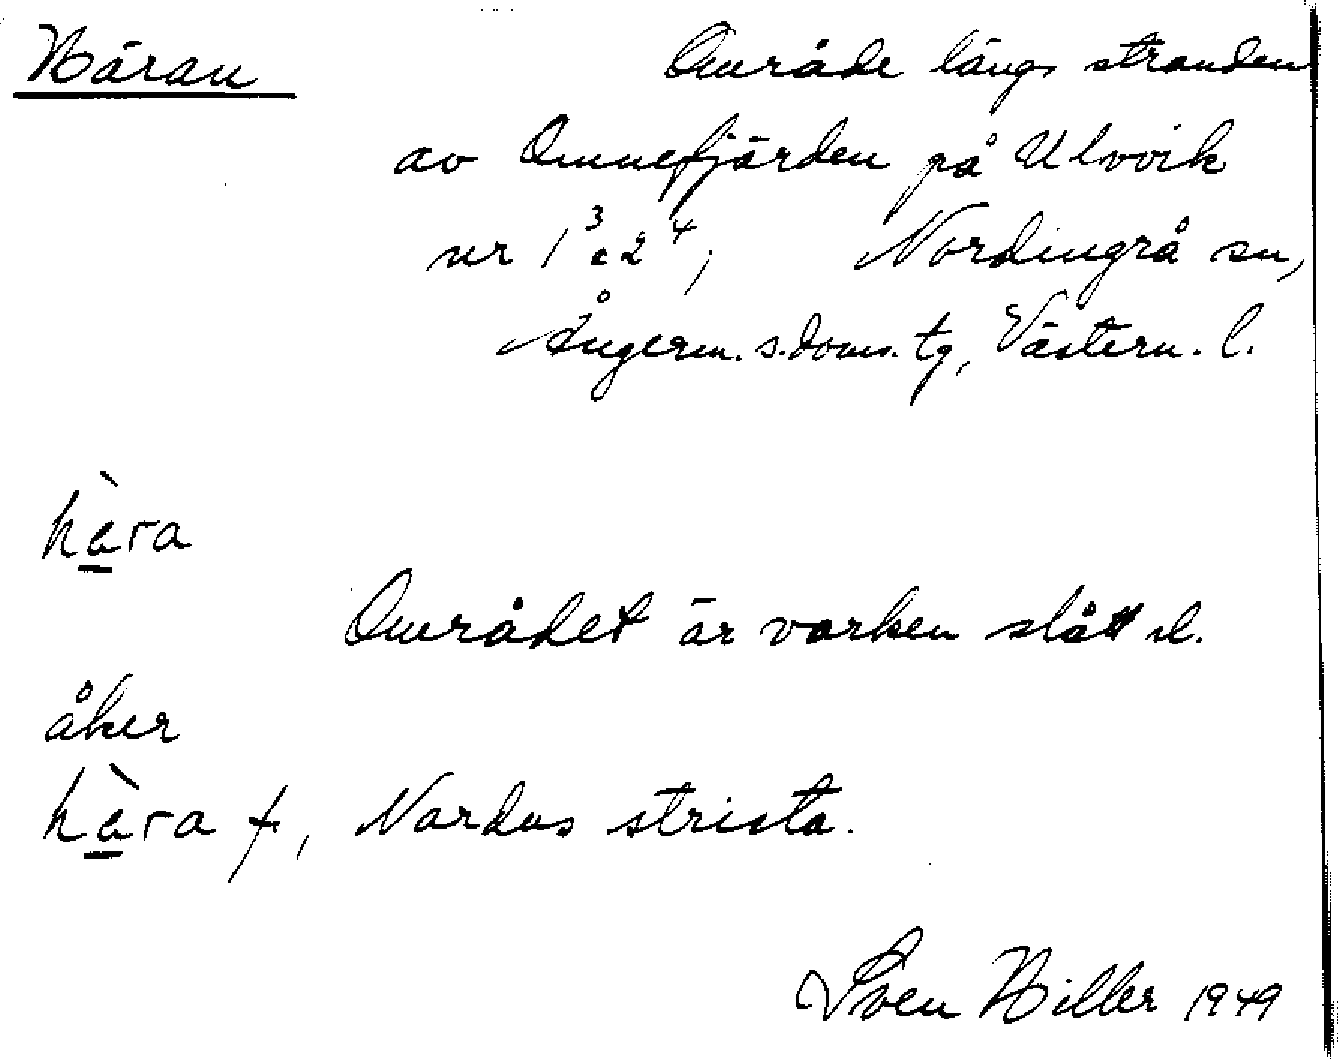 Häran Område längs stranden
av Omnefjärden på Ulvvik
nr 1³ o. 2⁴, Nordingrå sn,
Ångerm. s. doms. tg, Västern. l.
hàra
Området är varken slått el.
åker
hàra f, Nardus stricta.
Sven Hiller 1949